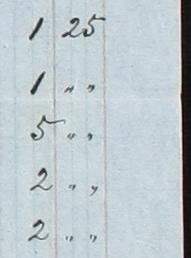 1 25
1 „ „
5 „ „
2 „ „
2 „ „